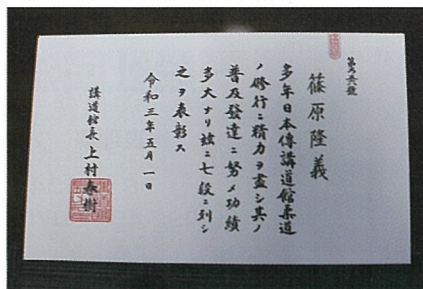 篠原隆義
多年日本傳講道館柔道
ノ修行ニ精力ヲ盡シ其ノ
普及發達ニ努メ功績
多大ナリ玆ニ七段ニ列シ
之ヲ表彰ス
令和三年五月一日
講道館長 上村春樹